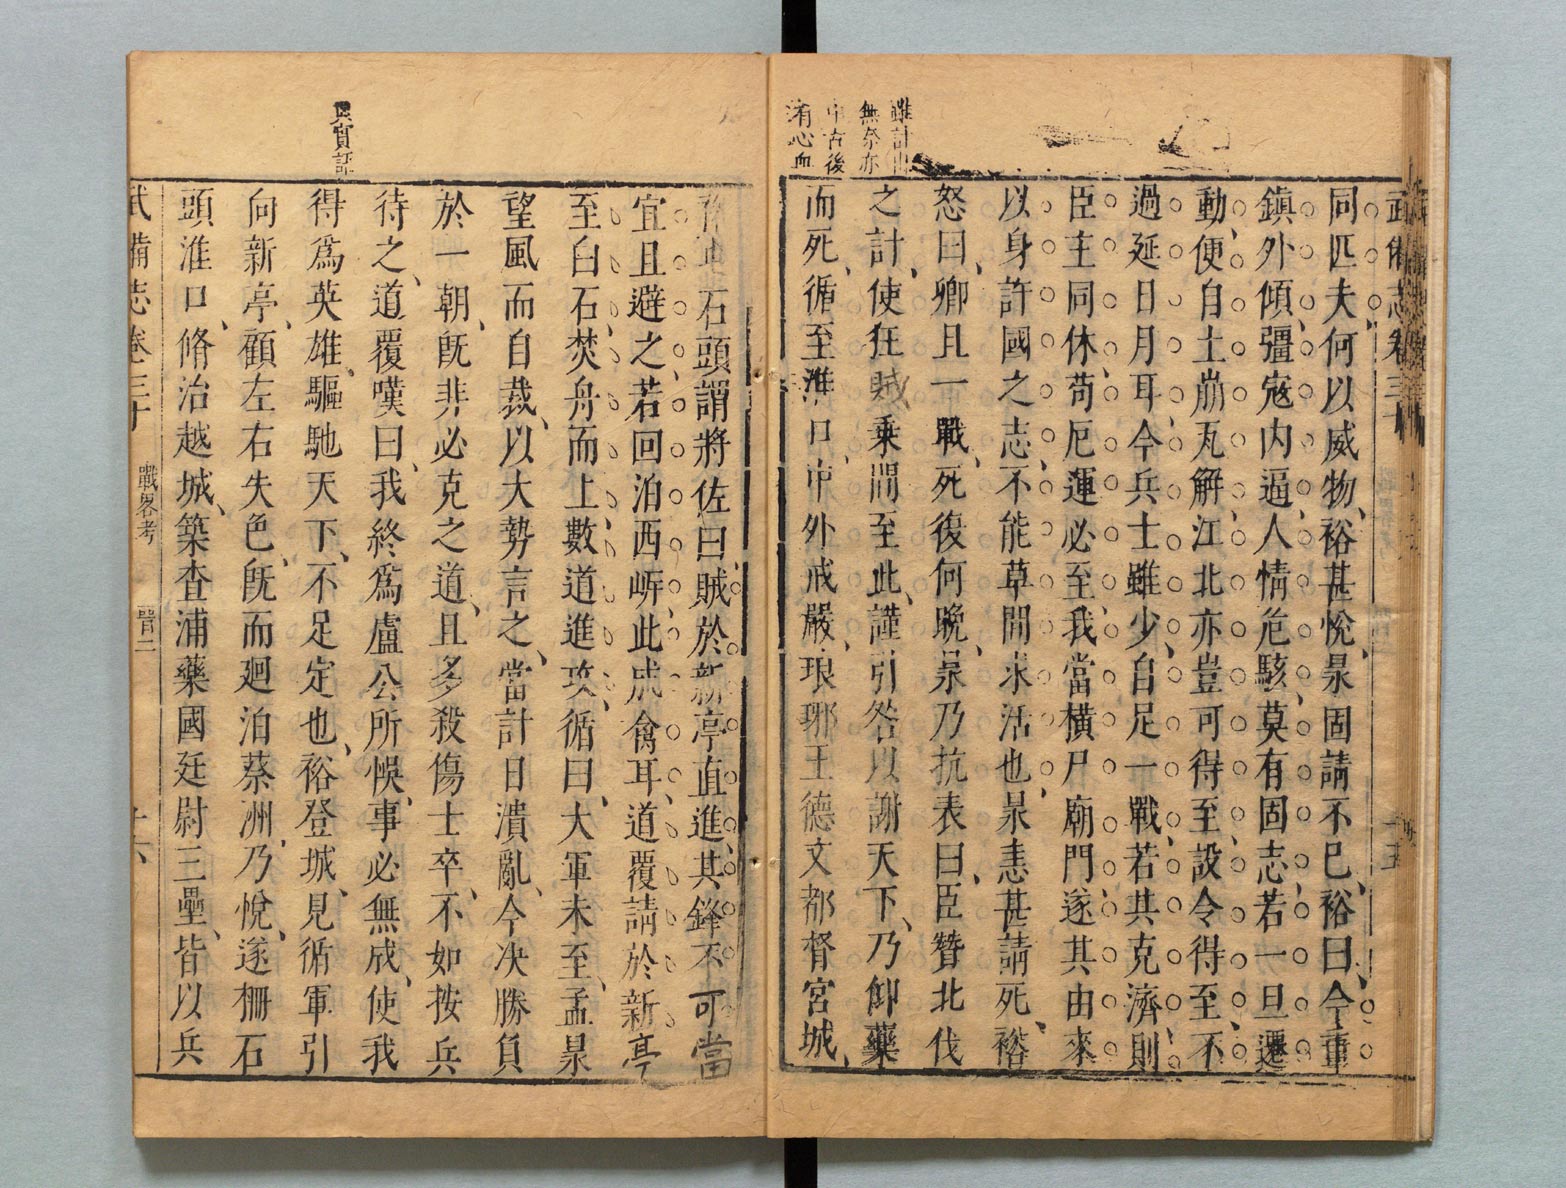 武備志卷三十
同匹夫何以威物裕甚悅㫤固請不已裕曰今重
鎮外傾彊寇内逼人情危駭莫有固志若一旦遷
動便自土崩瓦解江北亦豈可得至設令得至不
過延日月耳今兵士雖少自足一戰若其克濟則
臣主同休苟厄運必至我當橫尸廟門遂其由來
以身許國之志不能草間求活也㫤恚甚請死裕
怒曰卿且一戰死復何晩㫤乃抗表曰臣贊北伐
之計使狂賊乗間至此謹引咎以謝天下乃仰藥
而死循至淮口中外戒嚴琅琊王德文都督宮城
雖計出
無奈亦
中古後
有心血
石頭謂將佐曰賊於新亭直進其鋒不可當
宜且避之若回泊西岍此成禽耳道覆請於新亭
至白石焚舟而上數道進攻循曰大軍未至孟㫤
望風而自裁以大勢言之當計日潰亂今决勝負
於一朝旣非必克之道且多殺傷士卒不如按兵
待之道覆嘆曰我終爲盧公所悞事必無成使我
得爲英雄驅馳天下不足定也裕登城見循軍引
向新亭顧左右失色旣而廻泊蔡洲乃悅遂柵石
頭淮口脩治越城築查浦藥園廷尉三壘皆以兵
武備志卷三十
戰畧考
晉二
十六